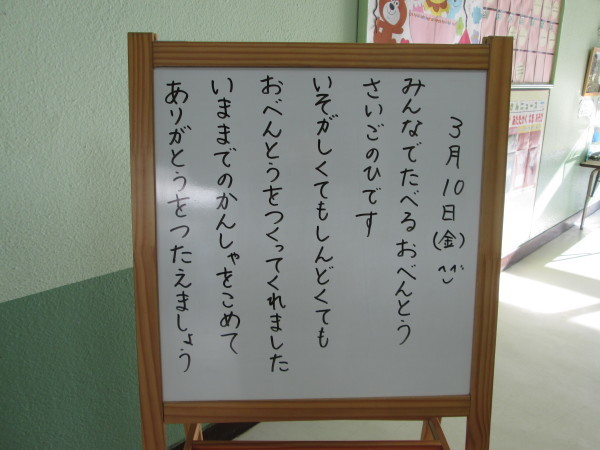 3月10日(金)
みんなでたべるおべんとう
さいごのひです
いそがしくてもしんどくても
おべんとうをつくってくれました
いままでのかんしゃをこめて
ありがとうをつたえましょう